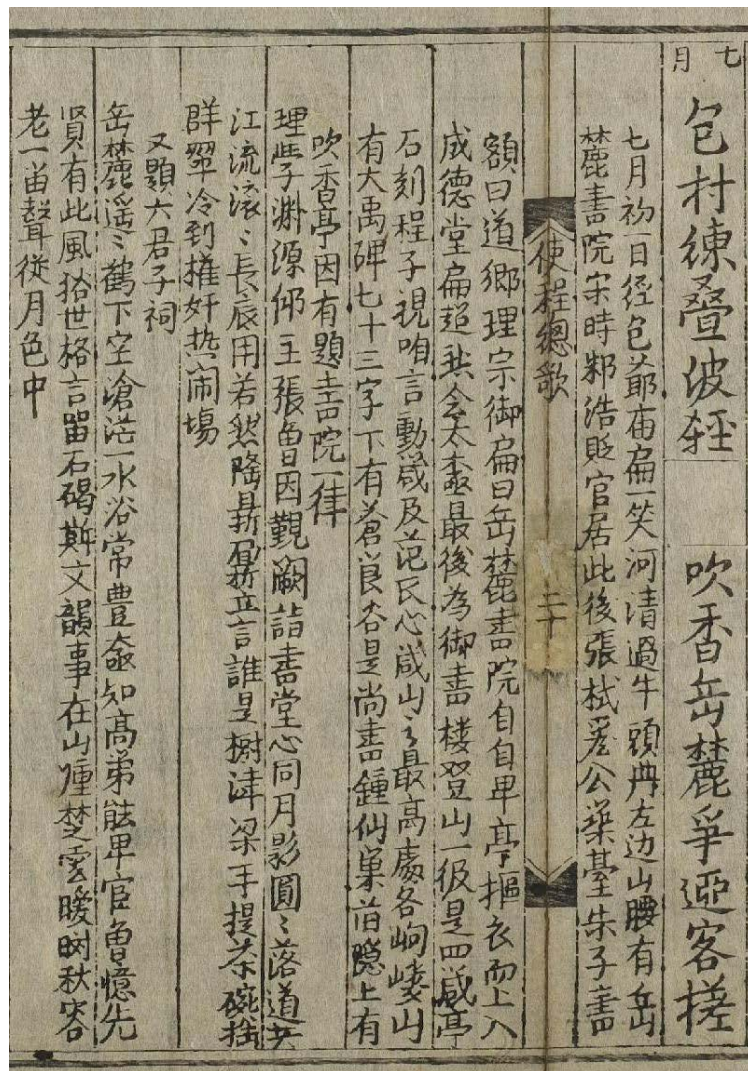 七月
包村練疊波輕 吹香岳麓爭迎客槎
七月初一日徑包爺庙扁一笑河清過牛頭冉左边山腰有岳
麓書院宋時鄒浩貶官居此後張栻爲公築臺朱子書
使程總歌 二十
額曰道鄉理宗御扁曰岳麓書院自自卑亭摳衣而上入
成德堂扁超然会太極最後為御書楼登山一级是四箴亭
石刻程子視咱言動箴及范氏心箴山〻最高處名岣嶁山
有大禹碑七十三字下有蒼筤谷是尚書鍾仙巢苗隱上有
吹香亭因有題書院一律
理學渊源仰王張魯因觀闕詣書堂心同月影圓〻落道共
江流滚〻長辰用若然隆鼎鼐立言誰是樹津梁手提茶碗捨
群翠冷到摧奸热闹場
又題六君子祠
岳麓遥〻鶴下空滄茫一水浴常豊龛知高弟能卑官魯憶先
賢有此風拾世格言畱石碣斯文韻事在山僮楚雲曖树秋容
老一笛聲從月色中